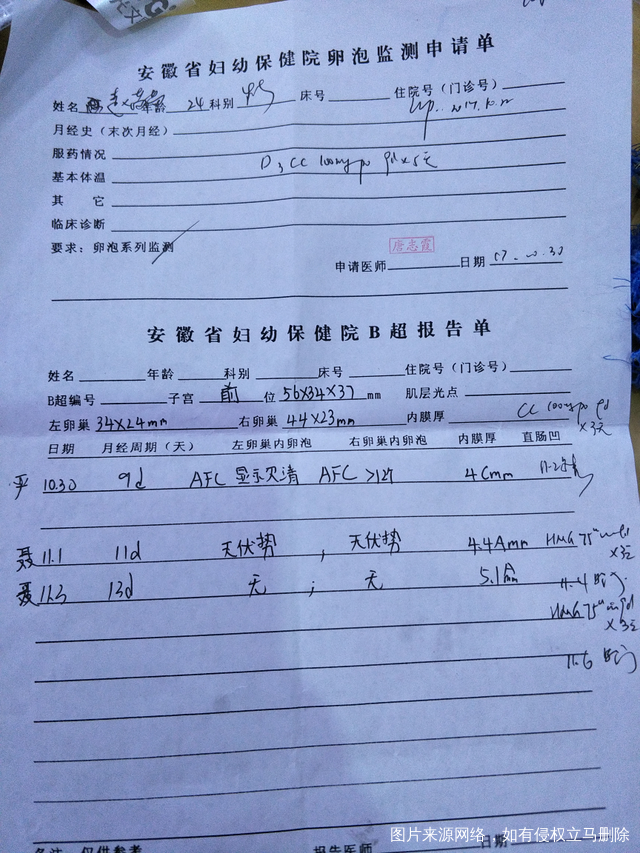 安徽省妇幼保健院卵泡监测申请单
姓名 年龄 24 科别 床号 住院号（门诊号）
月经史（末次月经） Lmp: 2017.10.22
服药情况
基本体温 D3 CC 100mg po qd×5天
其 它
临床诊断
要求：卵泡系列监测
唐志霞
申请医师 日期 17.10.30
安徽省妇幼保健院B超报告单
姓名 年龄 科别 床号 住院号（门诊号）
B超编号 子宫 前 位 56×34×37 mm 肌层光点
左卵巢 34×24mm 右卵巢 44×23mm 内膜厚 CC 100mg po qd
×3天
日期 月经周期（天） 左卵巢内卵泡 右卵巢内卵泡 内膜厚 直肠凹
10.30 9d AFC 显示欠清 AFC >12个 4Cmm
聂 11.1 11d 无优势 ; 无优势 4.4Amm HMG 75u
×3天
聂 11.3 13d 无 ; 无 5.1Amm 11.4
HMG 75u qd
×3天
11.6
备注：仅供参考 报告医师 日期
图片来源网络，如有侵权立马删除